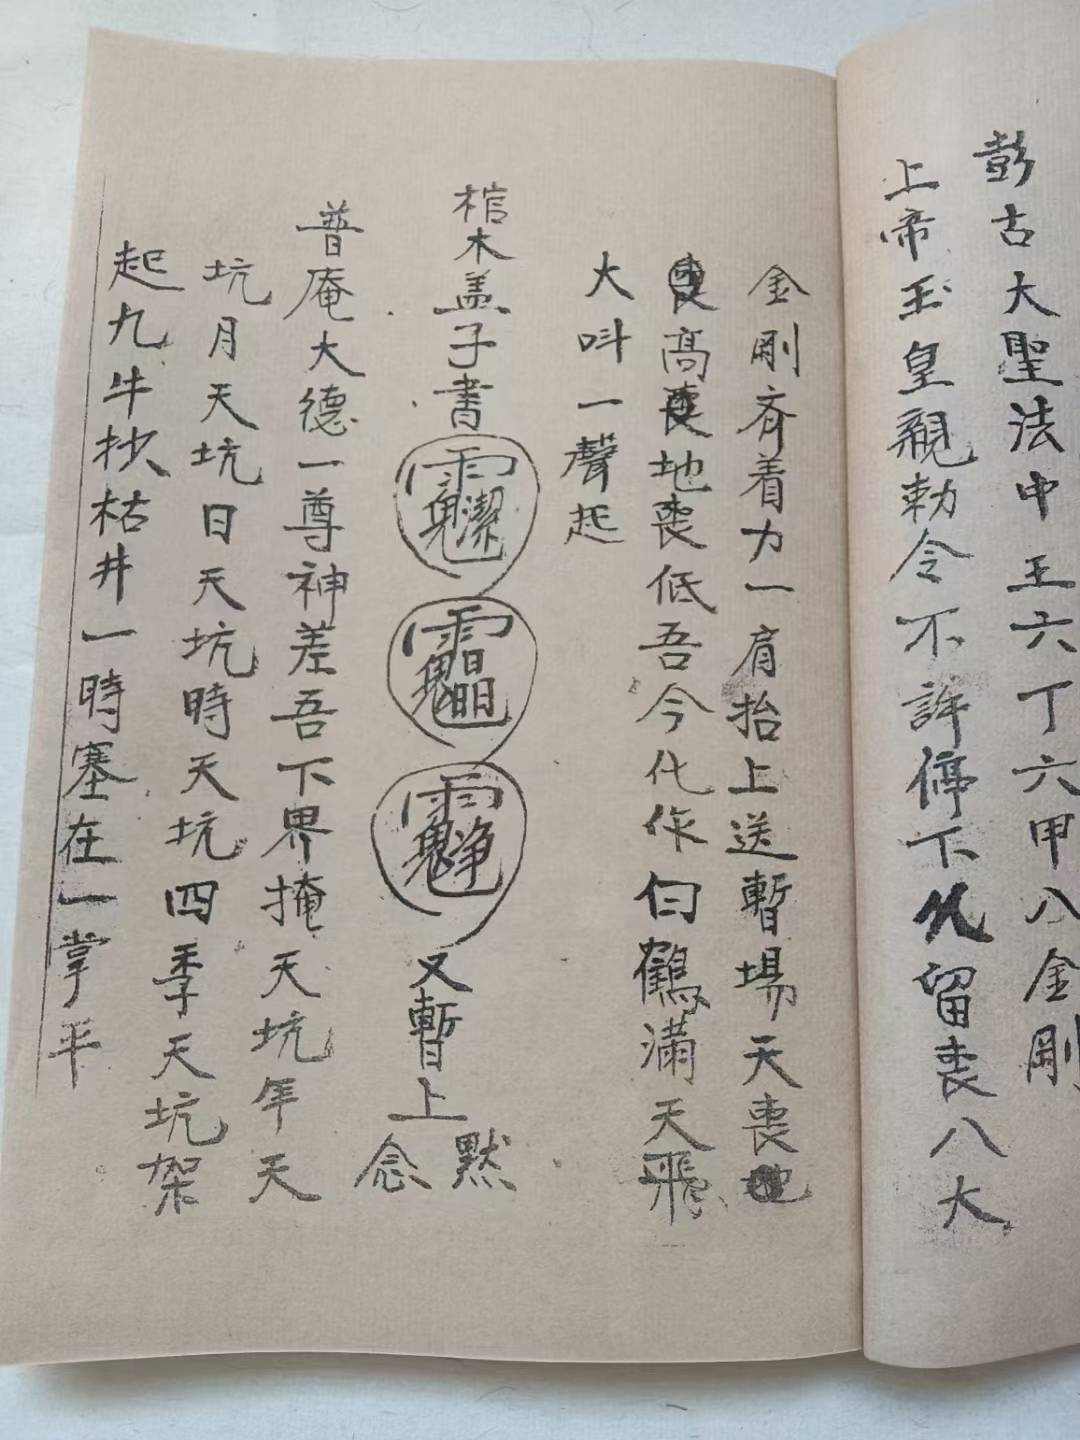 彭古大聖法中王六丁六甲八金剛
上帝玉皇親勅令不許停下留喪八大
金剛齐着力一肩抬上送暫場天喪地
喪高喪地喪低吾今化作白鶴滿天飛
大叫一聲起
棺木盖子書
又暫上
默念
普庵大德一尊神差吾下界掩天坑年天
坑月天坑日天坑時天坑四季天坑架
起九牛抄枯井一時塞在一掌平